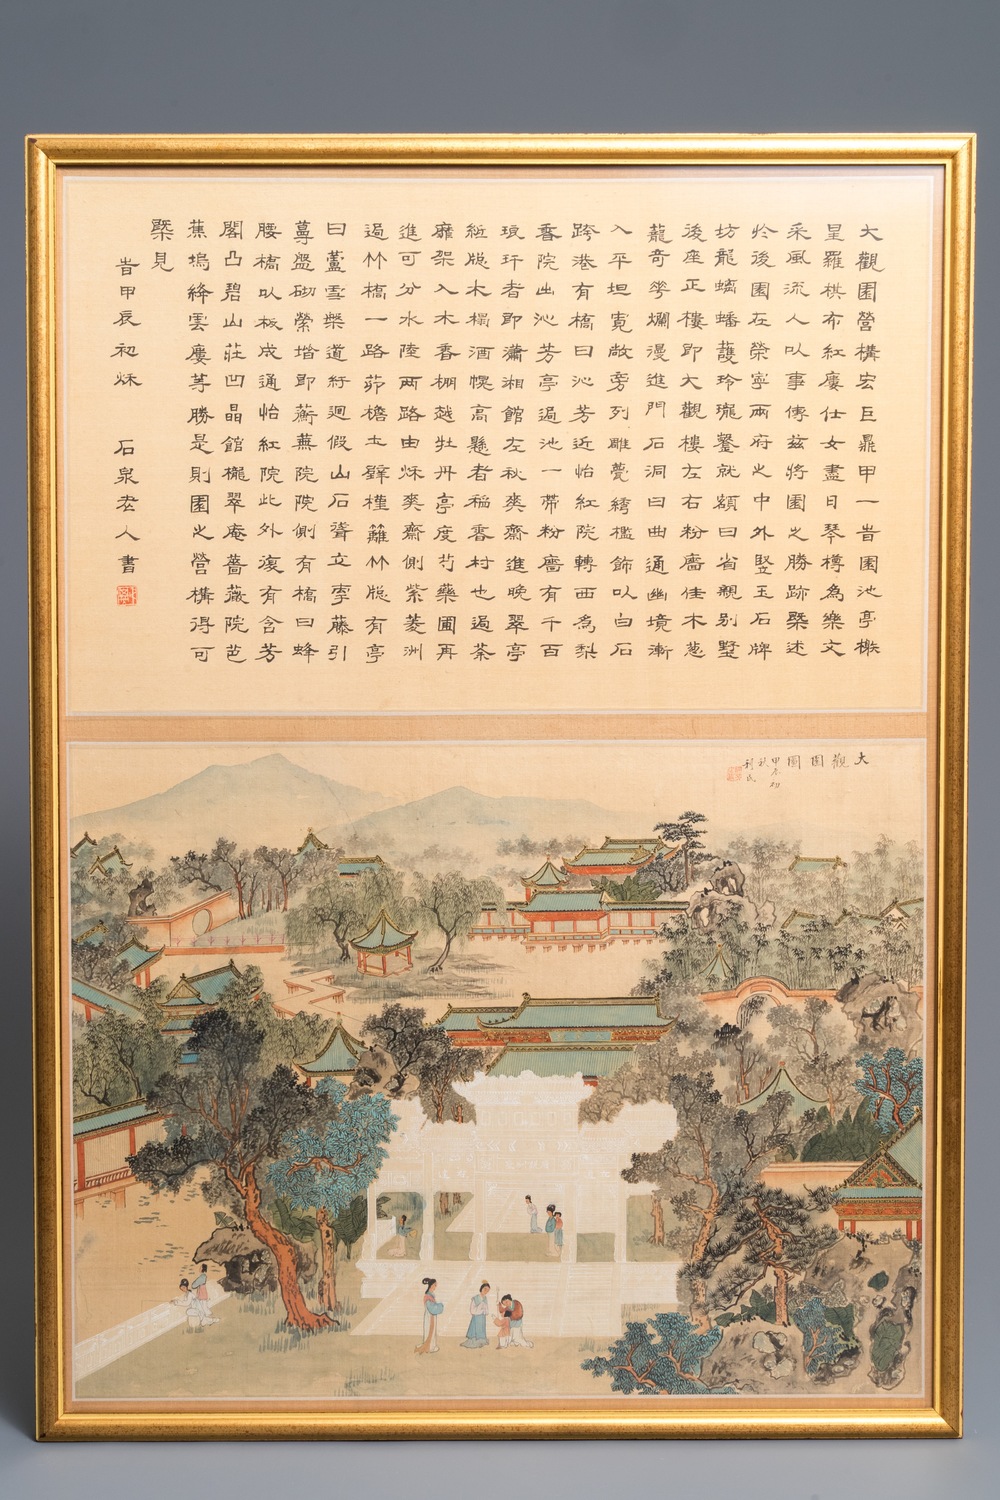 大觀園營構宏巨鼎甲一時園池亭榭
星羅棋布紅廔仕女盡日琴樽為樂文
采風流人以事傳茲將園之勝跡槩述
於後園在榮寧兩府之中外豎玉石牌
坊龍螭蟠護玲瓏鑿就額曰省親別墅
後座正樓即大觀樓左右粉牆佳木蔥
蘢奇花爛漫進門石洞曰曲通幽境漸
入平坦寬敞旁列雕甍綉檻飾以白石
跨港有橋曰沁芳近怡紅院轉西為梨
香院出沁芳亭過池一帶粉牆有千百
琅玕者即瀟湘館左秋爽齋進晚翠亭
紙牕木榻酒幌高懸者稲香村也過荼
蘼架入木香棚越牡丹亭度芍藥圃再
進可分水陸兩路由秌爽齋側紫菱洲
過竹橋一路茆檐土壁槿籬竹牕有亭
曰蘆雪槩道紆迴假山石聳立穿藤引
蔓盤砌縈堦即蘅蕪院院側有橋曰蜂
腰橋以板成通怡紅院此外復有含芳
閣凸碧山莊凹晶館櫳翠庵薔薇院芭
蕉塢絳雲廔等勝是則園之營構得可
槩見
時甲辰初秌 石泉老人書
大觀園圖
甲辰初
秋